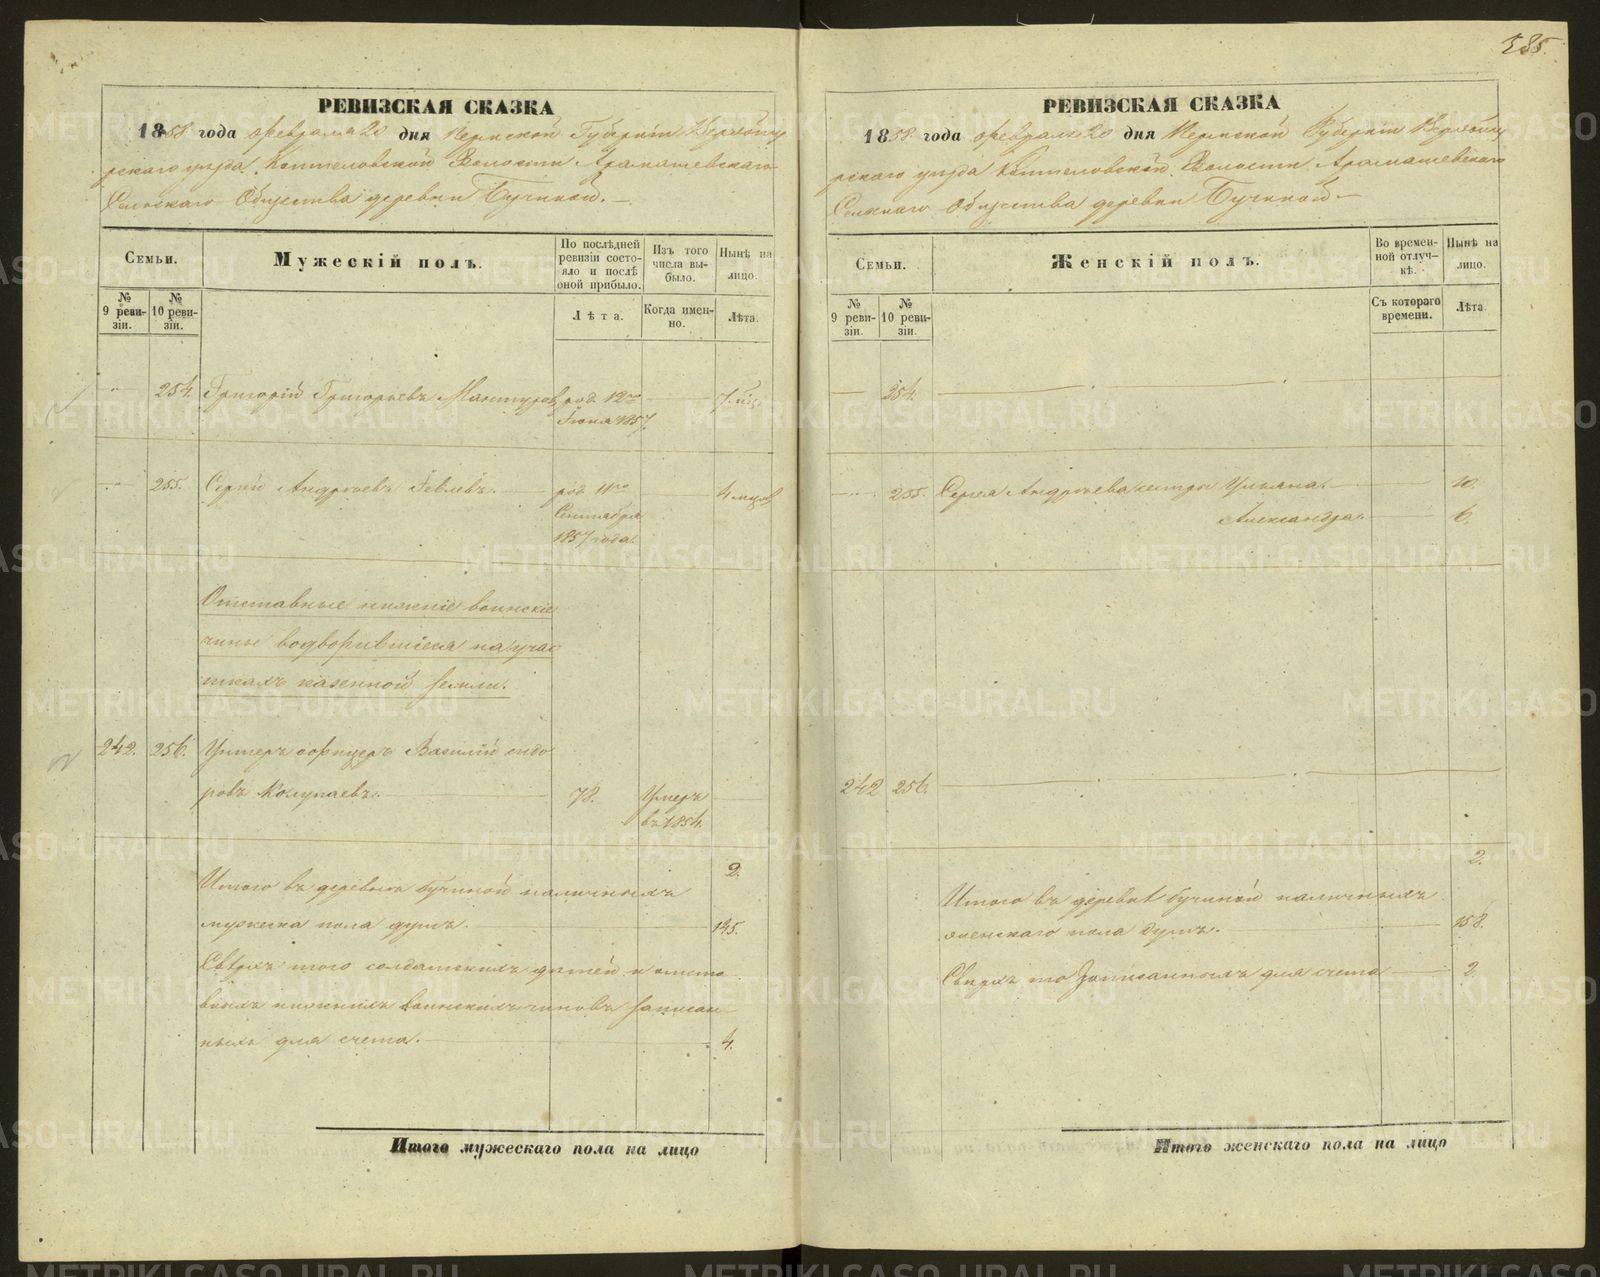 385.
РЕВИЗСКАЯ СКАЗКА
1858 года февраля 20 дня Пермской Губерніи Верхоту
рскаго уѣзда, Коптеловской Волости Арамашевскаго
Сельскаго Общества деревни Бучиной.
Семьи.
Мужескій полъ.
По послѣдней ревизіи состояло и послѣ оной прибыло.
Изъ того числа выбыло.
Нынѣ на лицо.
№ 9 ревизіи.
№ 10 ревизіи.
Лѣта.
Когда именно.
Лѣта.
254. Григорій Григорьевъ род. 12го 7.
Іюня 1857.
255. Сергѣй Андреевъ род. 11го 4 мцов
Сентября
1857 года.
Отставные нижніе воинскіе
чины водворившіеся на учас
ткахъ казенной земли.
242. 256. Унтеръ офицеръ Василій
ровъ Колупаевъ. 78. Умеръ
въ 1854.
2.
Итого въ деревнѣ Бучиной наличныхъ
мужеска пола душъ. 145.
Сверхъ того солдатскихъ дѣтей и отста
выхъ нижнихъ воинскихъ чиновъ записан
ныхъ для счета. 4.
Итого мужескаго пола на лицо
РЕВИЗСКАЯ СКАЗКА
1858 года февраля 20 дня Пермской Губерніи Верхоту
рскаго уѣзда Коптеловской Волости Арамашевскаго
Сельскаго Общества деревни Бучиной
Семьи.
Женскій полъ.
Во временной отлучкѣ.
Нынѣ на лицо.
№ 9 ревизіи.
№ 10 ревизіи.
Съ котораго времени.
Лѣта.
254.
255. Сергея Андреева сестры Ульяна. 10.
Александра. 6.
242 256.
2.
Итого въ деревнѣ Бучиной наличныхъ
женскаго пола душъ. 158.
Сверхъ то записанныхъ для счета 2.
Итого женскаго пола на лицо
METRIKI.GASO-URAL.RU